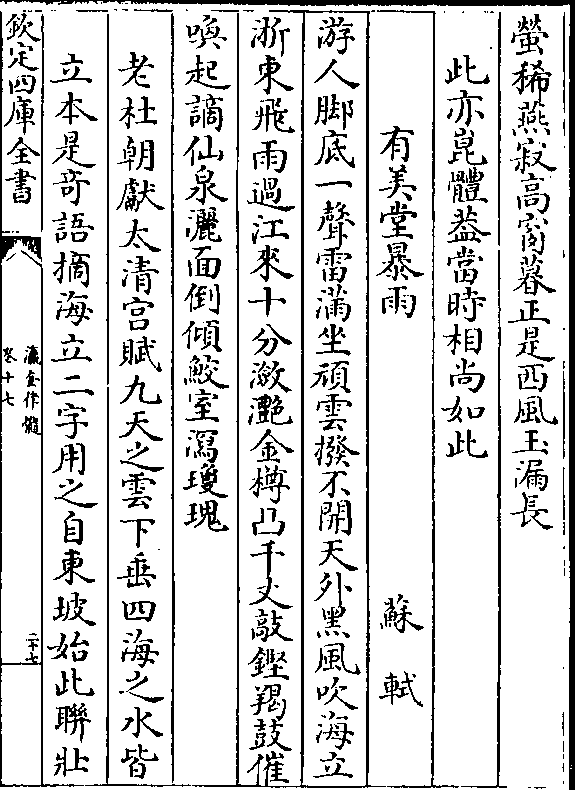 螢稀燕寂高窗暮正是西風玉漏長
此亦崑體葢當時相尚如此
有美堂暴雨 蘇軾
游人脚底一聲雷滿坐頑雲撥不開天外黑風吹海立
浙東飛雨過江來十分瀲灩金樽凸千丈敲鏗羯鼓催
喚起謫仙泉灑面倒傾鮫室瀉瓊瑰
老杜朝獻太清宫賦九天之雲下垂四海之水皆
立本是奇語摘海立二字用之自東坡始此聯壯
欽定四庫全書
瀛奎律髓
卷十七
二十七